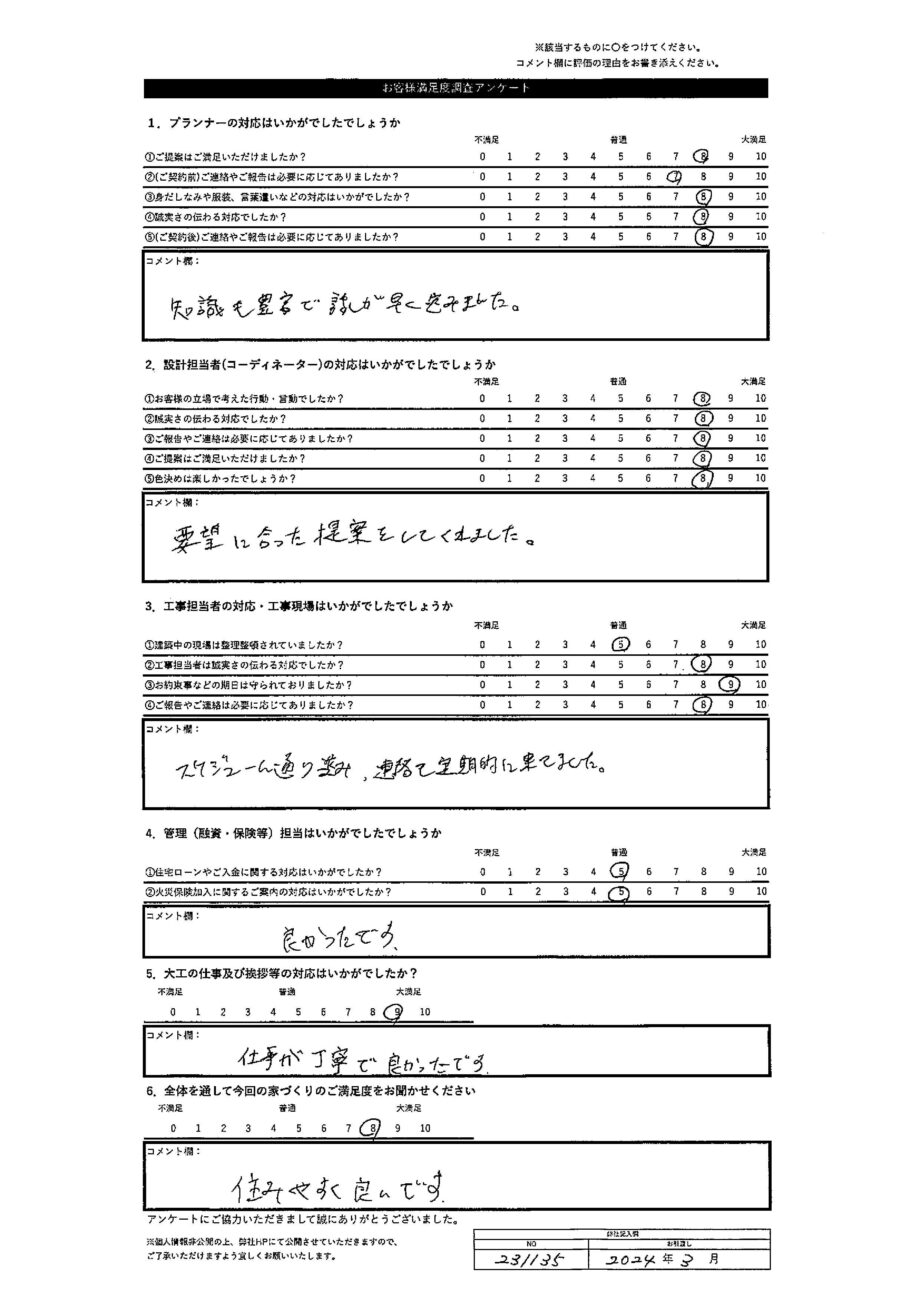 ※該当するものに〇をつけてください。
コメント欄に評価の理由をお書き添えください。
お客様満足度調査アンケート
1．プランナーの対応はいかがでしたでしょうか
不満足 普通 大満足
①ご提案はご満足いただけましたか？ 0 1 2 3 4 5 6 7 8 9 10
②(ご契約前)ご連絡やご報告は必要に応じてありましたか？ 0 1 2 3 4 5 6 7 8 9 10
③身だしなみや服装、言葉遣いなどの対応はいかがでしたか？ 0 1 2 3 4 5 6 7 8 9 10
④誠実さの伝わる対応でしたか？ 0 1 2 3 4 5 6 7 8 9 10
⑤(ご契約後)ご連絡やご報告は必要に応じてありましたか？ 0 1 2 3 4 5 6 7 8 9 10
コメント欄：
知識も豊富で話しが早く進みました。
2．設計担当者(コーディネーター)の対応はいかがでしたでしょうか
不満足 普通 大満足
①お客様の立場で考えた行動・言動でしたか？ 0 1 2 3 4 5 6 7 8 9 10
②誠実さの伝わる対応でしたか？ 0 1 2 3 4 5 6 7 8 9 10
③ご報告やご連絡は必要に応じてありましたか？ 0 1 2 3 4 5 6 7 8 9 10
④ご提案はご満足いただけましたか？ 0 1 2 3 4 5 6 7 8 9 10
⑤色決めは楽しかったでしょうか？ 0 1 2 3 4 5 6 7 8 9 10
コメント欄：
要望に合った提案をしてくれました。
3．工事担当者の対応・工事現場はいかがでしたでしょうか
不満足 普通 大満足
①建築中の現場は整理整頓されていましたか？ 0 1 2 3 4 5 6 7 8 9 10
②工事担当者は誠実さの伝わる対応でしたか？ 0 1 2 3 4 5 6 7 8 9 10
③お約束事などの期日は守られておりましたか？ 0 1 2 3 4 5 6 7 8 9 10
④ご報告やご連絡は必要に応じてありましたか？ 0 1 2 3 4 5 6 7 8 9 10
コメント欄：
スケジュール通り進み、連絡も定期的に来てました。
4．管理（融資・保険等）担当はいかがでしたでしょうか
不満足 普通 大満足
①住宅ローンやご入金に関する対応はいかがでしたか？ 0 1 2 3 4 5 6 7 8 9 10
②火災保険加入に関するご案内の対応はいかがでしたか？ 0 1 2 3 4 5 6 7 8 9 10
コメント欄：
良かったです。
5．大工の仕事及び挨拶等の対応はいかがでしたか？
不満足 普通 大満足
0 1 2 3 4 5 6 7 8 9 10
コメント欄：
仕事が丁寧で良かったです。
6．全体を通して今回の家づくりのご満足度をお聞かせください
不満足 普通 大満足
0 1 2 3 4 5 6 7 8 9 10
コメント欄：
住みやすく良いです。
アンケートにご協力いただきまして誠にありがとうございました。
※個人情報非公開の上、弊社HPにて公開させていただきますので、
ご了承いただけますよう宜しくお願いいたします。
弊社記入欄
NO お引渡し
231135 2024年3月